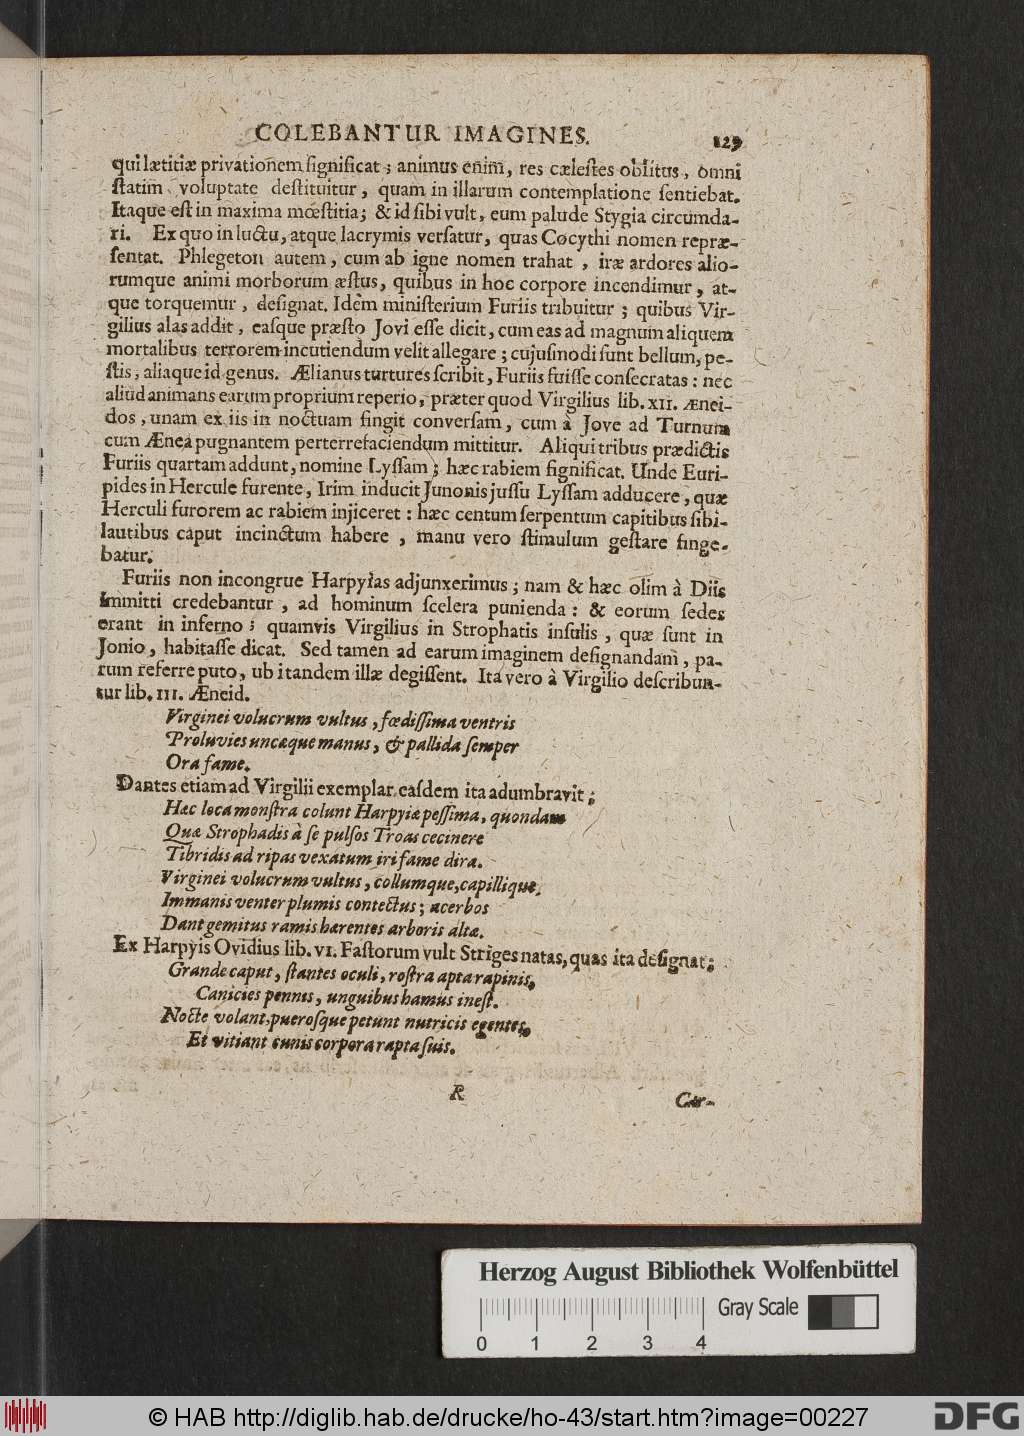 COLEBANTUR IMAGINES. 129
qui lætitiæ privationem significat; animus enim, res cælestes oblitus, omni
statim voluptate destituitur, quam in illarum contemplatione sentiebat.
Itaque est in maxima mœstitia; & id sibi vult, eum palude Stygia circumda-
ri. Ex quo in luctu, atque lacrymis versatur, quas Cocythi nomen repræ-
sentat. Phlegeton autem, cum ab igne nomen trahat, iræ ardores alio-
rumque animi morborum æstus, quibus in hoc corpore incendimur, at-
que torquemur, designat. Idem ministerium Furiis tribuitur; quibus Vir-
gilius alas addit, easque præsto Jovi esse dicit, cum eas ad magnum aliquem
mortalibus terrorem incutiendum velit allegare; cujusmodi sunt bellum, pe-
stis, aliaque id genus. Ælianus turtures scribit, Furiis fuisse consecratas: nec
aliud animans earum proprium reperio, præter quod Virgilius lib. XII. Ænei-
dos, unam ex iis in noctuam fingit conversam, cum à Jove ad Turnum
cum Ænea pugnantem perterrefaciendum mittitur. Aliqui tribus prædictis
Furiis quartam addunt, nomine Lyssam; hæc rabiem significat. Unde Euri-
pides in Hercule furente, Irim inducit Junonis jussu Lyssam adducere, quæ
Herculi furorem ac rabiem injiceret: hæc centum serpentum capitibus sibi-
lautibus caput incinctum habere, manu vero stimulum gestare finge-
batur.
Furiis non incongrue Harpyias adjunxerimus; nam & hæc olim à Diis
immitti credebantur, ad hominum scelera punienda: & eorum sedes
erant in inferno; quamvis Virgilius in Strophatis insulis, quæ sunt in
Jonio, habitasse dicat. Sed tamen ad earum imaginem designandam, pa-
rum referre puto, ubi tandem illæ degissent. Ita vero à Virgilio describun-
tur lib. III. Æneid.
Virginei volucrum vultus, fœdissima ventris
Proluvies uncæque manus, & pallida semper
Ora fame.
Dantes etiam ad Virgilii exemplar easdem ita adumbravit;
Hæc loca monstra colunt Harpyiæ pessima, quondam
Quæ Strophadis à se pulsos Troas cecinere
Tibridis ad ripas vexatum iri fame dira.
Virginei volucrum vultus, collumque, capillique,
Immanis venter plumis contectus; acerbos
Dant gemitus ramis hærentes arboris altæ.
Ex Harpyis Ovidius lib. VI. Fastorum vult Striges natas, quas ita designat;
Grande caput, stantes oculi, rostra apta rapinis,
Canicies pennis, unguibus hamus inest.
Nocte volant, puerosque petunt nutricis egentes,
Et vitiant cunis corpora rapta suis.
R Car-
Herzog August Bibliothek Wolfenbüttel
Gray Scale
0 1 2 3 4
© HAB http://diglib.hab.de/drucke/ho-43/start.htm?image=00227
DFG